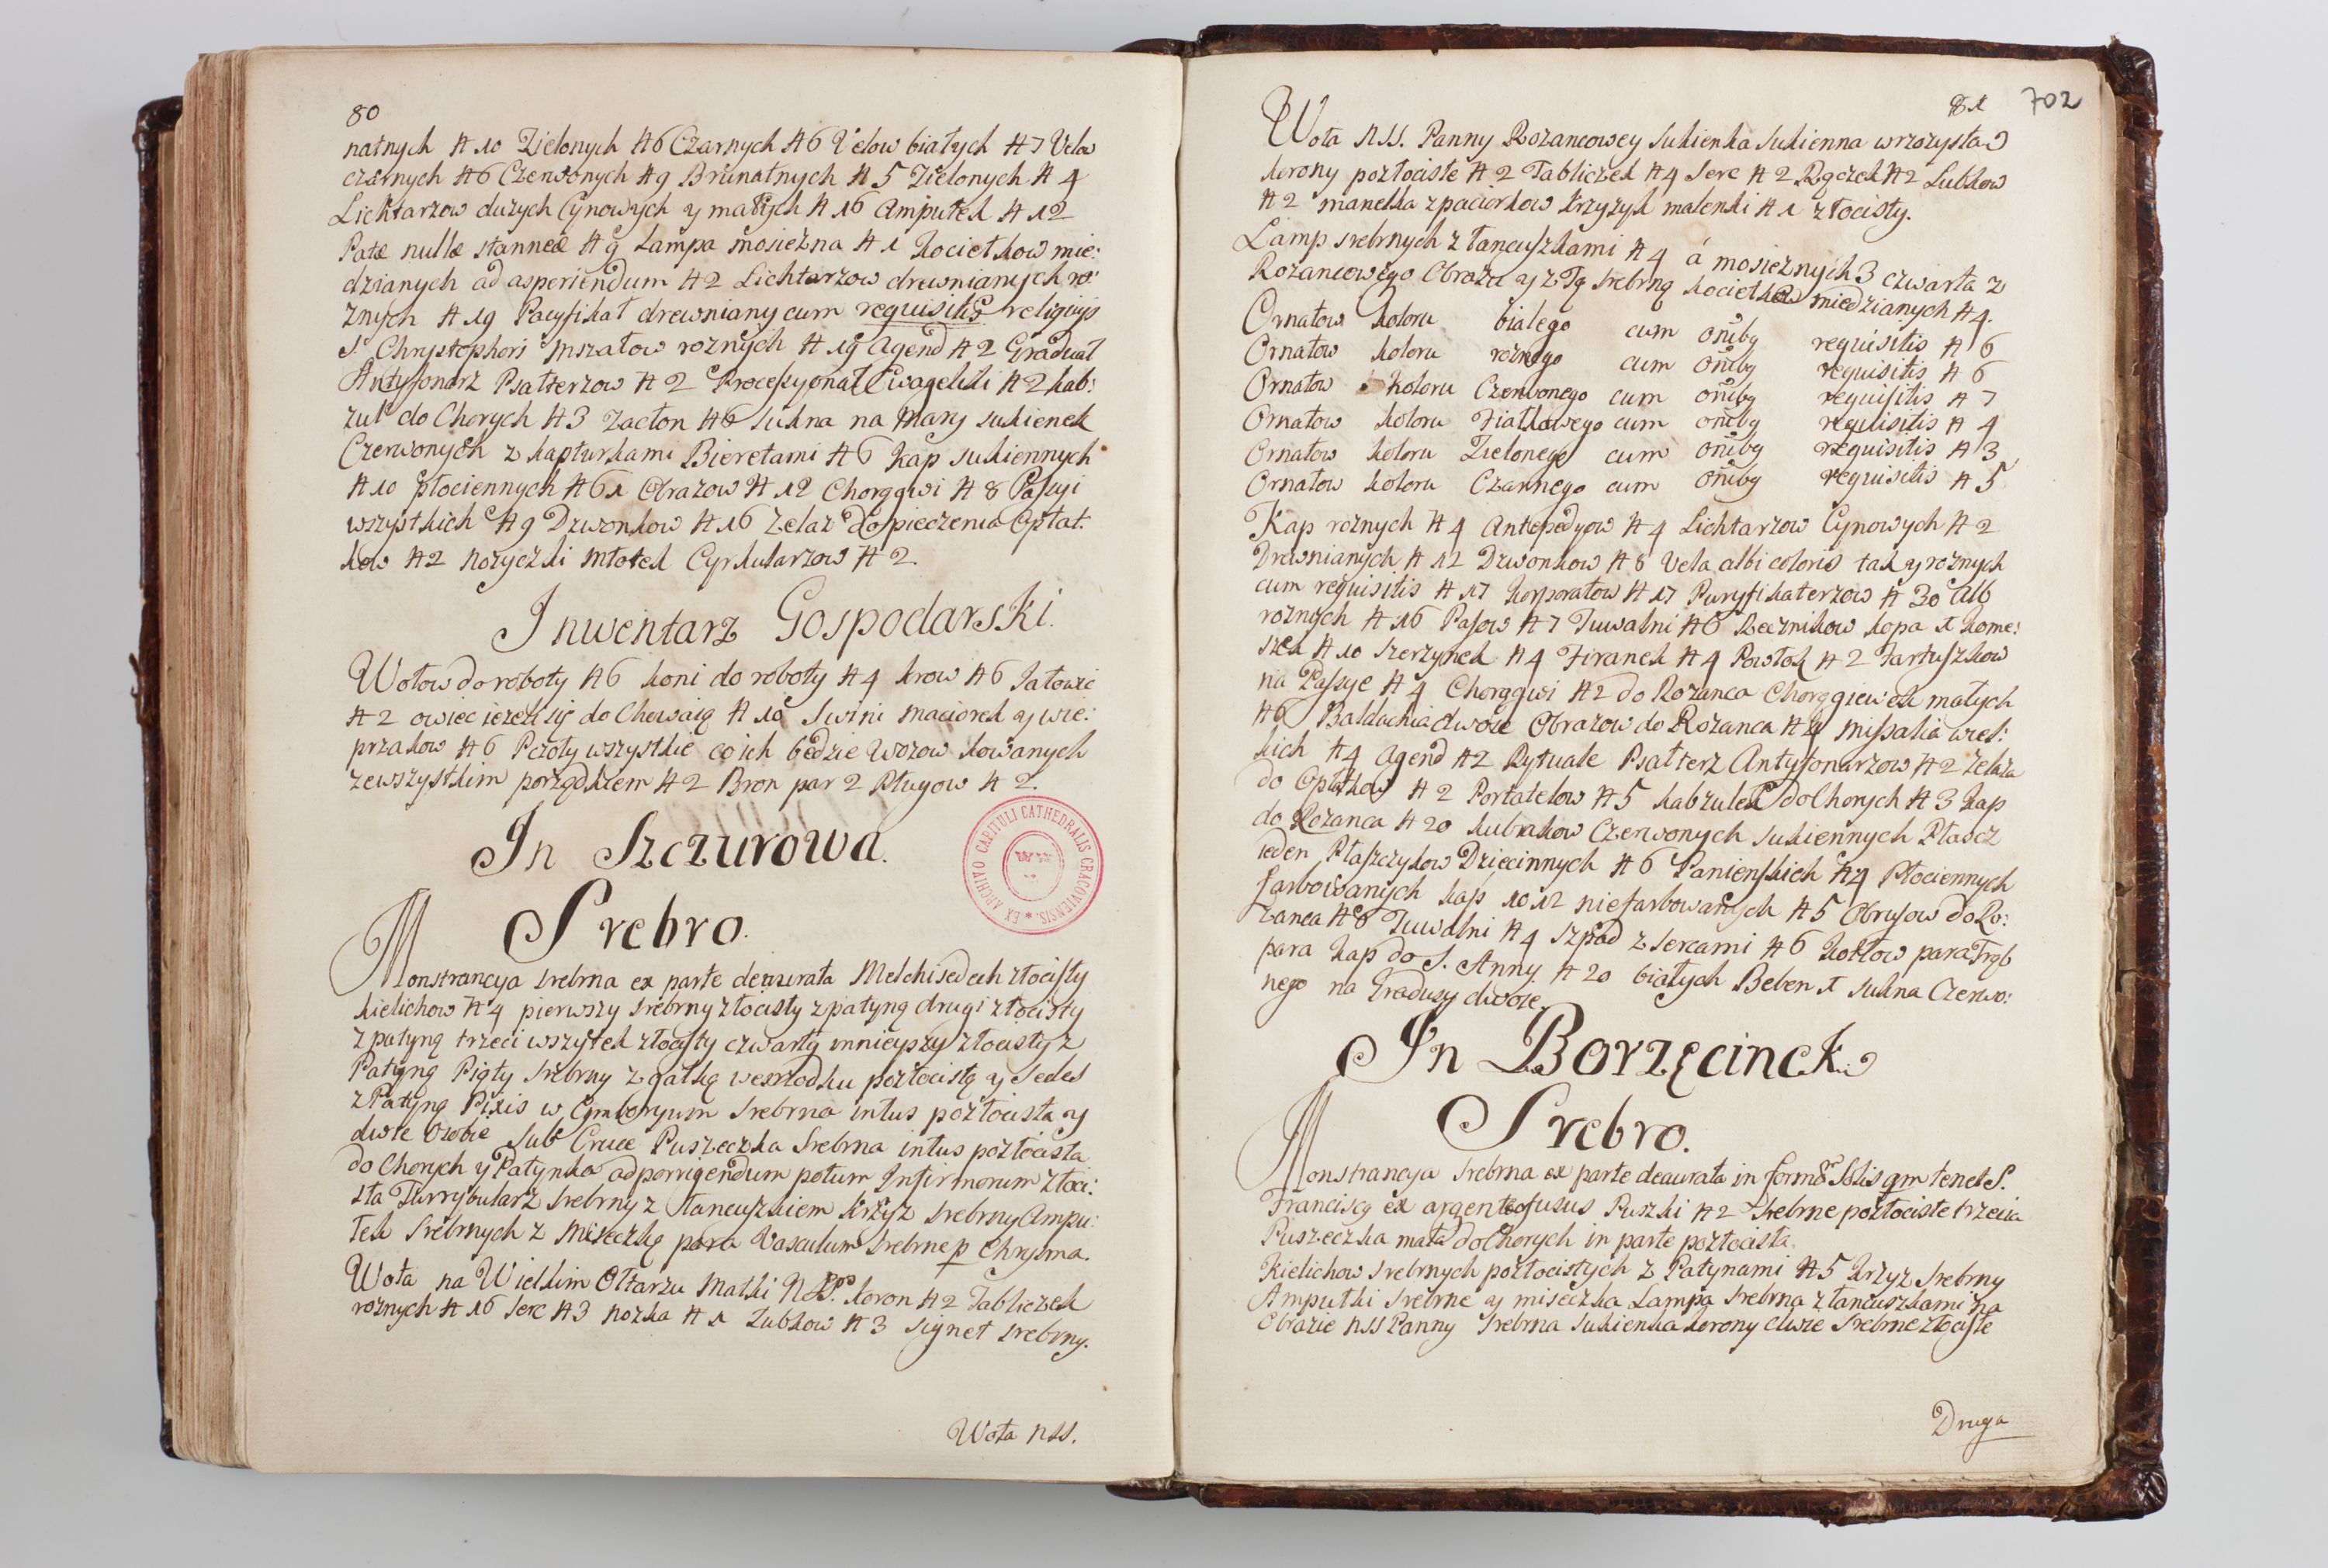 80
natnych # 10 Zielonych #6 Czarnych #6 Velow białych #7 Velow
czarnych #6 Czerwonych #9 Brunatnych #5 Zielonych #4
Lichtarzow duzych Cynowych y małych #16 Ampułek #12
Patæ nullæ stanneæ #9 Lampa mosiezna #1 Kociełkow mie:
dzianych ad asperiendum #2 Lichtarzow drewnianych ro:
znych #19 Pacyfikał drewniany cum requisitis religiuis
S. Chrystophori Mszałow roznych #19 Agend #2 Graduał
Antyfonarz Psałterzow #2 Procesyonał Ewagelili #2 kab:
zul do Chorych #3 Zacłon #6 Sukna na Mary sukienek
Czerwonych z kapturkami Bieretami #6 Kap sukiennych
#10 płociennych #61 Obrazow #12 Chorągwi #8 Passyi
wszystkich #9 Dzwonkow #16 Zelaz do pieczenia Opłat:
kow #2 nozyczki Młotek Cyrkularzow #2.
Inwentarz Gospodarski.
Wołow do roboty #6 koni do roboty #4 krow #6 Jałowic
#2 owiec iezeli się do Chowaią #10 Swini maciorek y wie:
przakow #6 Pczoły wszystkie co ich będzie Wozow kowanych
zewszystkim porządkiem #2 Bron par 2 Pługow #2.
In Szczurowa.
EX ARCHIVO CAPITULI CATHEDRALIS CRACOVIENSIS.
Srebro.
Monstrancya srebrna ex parte deaurata Melchisedech złocisty
kielichow #4 pierwszy srebrny złocisty z patyną drugi złocisty
z patyną trzeci wszytek złocisty czwarty mnieyszy złocisty z
Patyną Piąty srebrny z gałką wesrzodku pozłocistą y Sedes
z Patyną Pixis w Cymboryum srebrna intus pozłocista y
dwie Osobie sub Cruce Puszeczka Srebrna intus pozłocista
do Chorych y Patynka ad porrigendum potum Infirmorum złoci:
sta Turrybularz srebrny z łancuszkiem krzyz srebrny Ampu:
łek srebrnych z Miseczką para Vasculum srebrne p Chrysma.
Wota na Wielkim Ołtarzu Matki koron #2 Tabliczek
roznych #16 serc #3 nozka #1 Zubkow #3 signet srebrny.
Wota NSS.
81 702
Wota NSS. Panny Rozancowey Sukienka Sukienna wrzozysta
korony pozłociste #2 Tabliczek #4 Serc #2 Rączek #2 Lubkow
#2 manelka z paciorkow Krzyzyk malenki #1 złocisty.
Lamp srebrnych z łancuszkami #4 á mosieznych 3 czwarta z
Rozancowego Obraza y z Tą srebrną kociełkow miedzianych #4.
Ornatow koloru białego cum oñibg requisitis #6
Ornatow koloru roznego cum oñibg requisitis #6
Ornatow koloru Czerwonego cum oñibg requisitis #7
Ornatow koloru Fiałkowego cum oñibg requisitis #4
Ornatow koloru Zielonego cum oñibg requisitis #3
Ornatow koloru Czarnego cum oñibg requisitis #5
Kap roznych #4 Antepedyow #4 Lichtarzow Cynowych #2
Drewnianych #12 Dzwonkow #8 Vela albi coloris tak y roznych
cum requisitis #17 Korporałow #17 Puryfikaterzow #30 Alb
roznych #16 Pasow #7 Tuwalni #6 Recznikow kopa 1 Kome:
szek #10 Szerzynek #4 Firanek #4 Powłok #2 Fartuszkow
na Passye #4 Chorągwi #2 do Rozanca Chorągiewek małych
#6 Baldachia dwoie Obrazow do Rozanca #4 Missalia wiel:
kich #4 Agend #2 Rytuale Psałterz Antyfonarzow #2 Zelaza
do Opłatkow #2 Portatelow #5 kabzulek do Chorych #3 Kap
do Rozanca #20 kubrakow Czerwonych sukiennych Płascz
ieden Płaszczykow Dziecinnych #6 Panienskich #4 Płociennych
farbowanych kap 10 12 niefarbowanych #5 Obrusow do Ro:
zanca #8 Tuwalni #4 szpad z sercami #6 Kotłow para Trąb
para Kap do S. Anny. #20 białych Beben 1 sukna Czerwo:
nego na Gradusy dwoie.
In Borzęcinek.
Srebro.
Monstrancya srebrna ex parte deaurata in forma Solis qm tenet S.
Franciscg ex argento fusus Puszki #2 srebrne pozłociste trzecia
Puszeczka mała do Chorych in parte pozłocista.
Kielichow srebrnych pozłocistych z Patynami #5 krzyz srebrny
Ampułki srebrne y miseczka Lampa srebrna z łancuszkami na
Obrazie NSS Panny srebrna sukienka korony dwie srebrne złociste
Druga